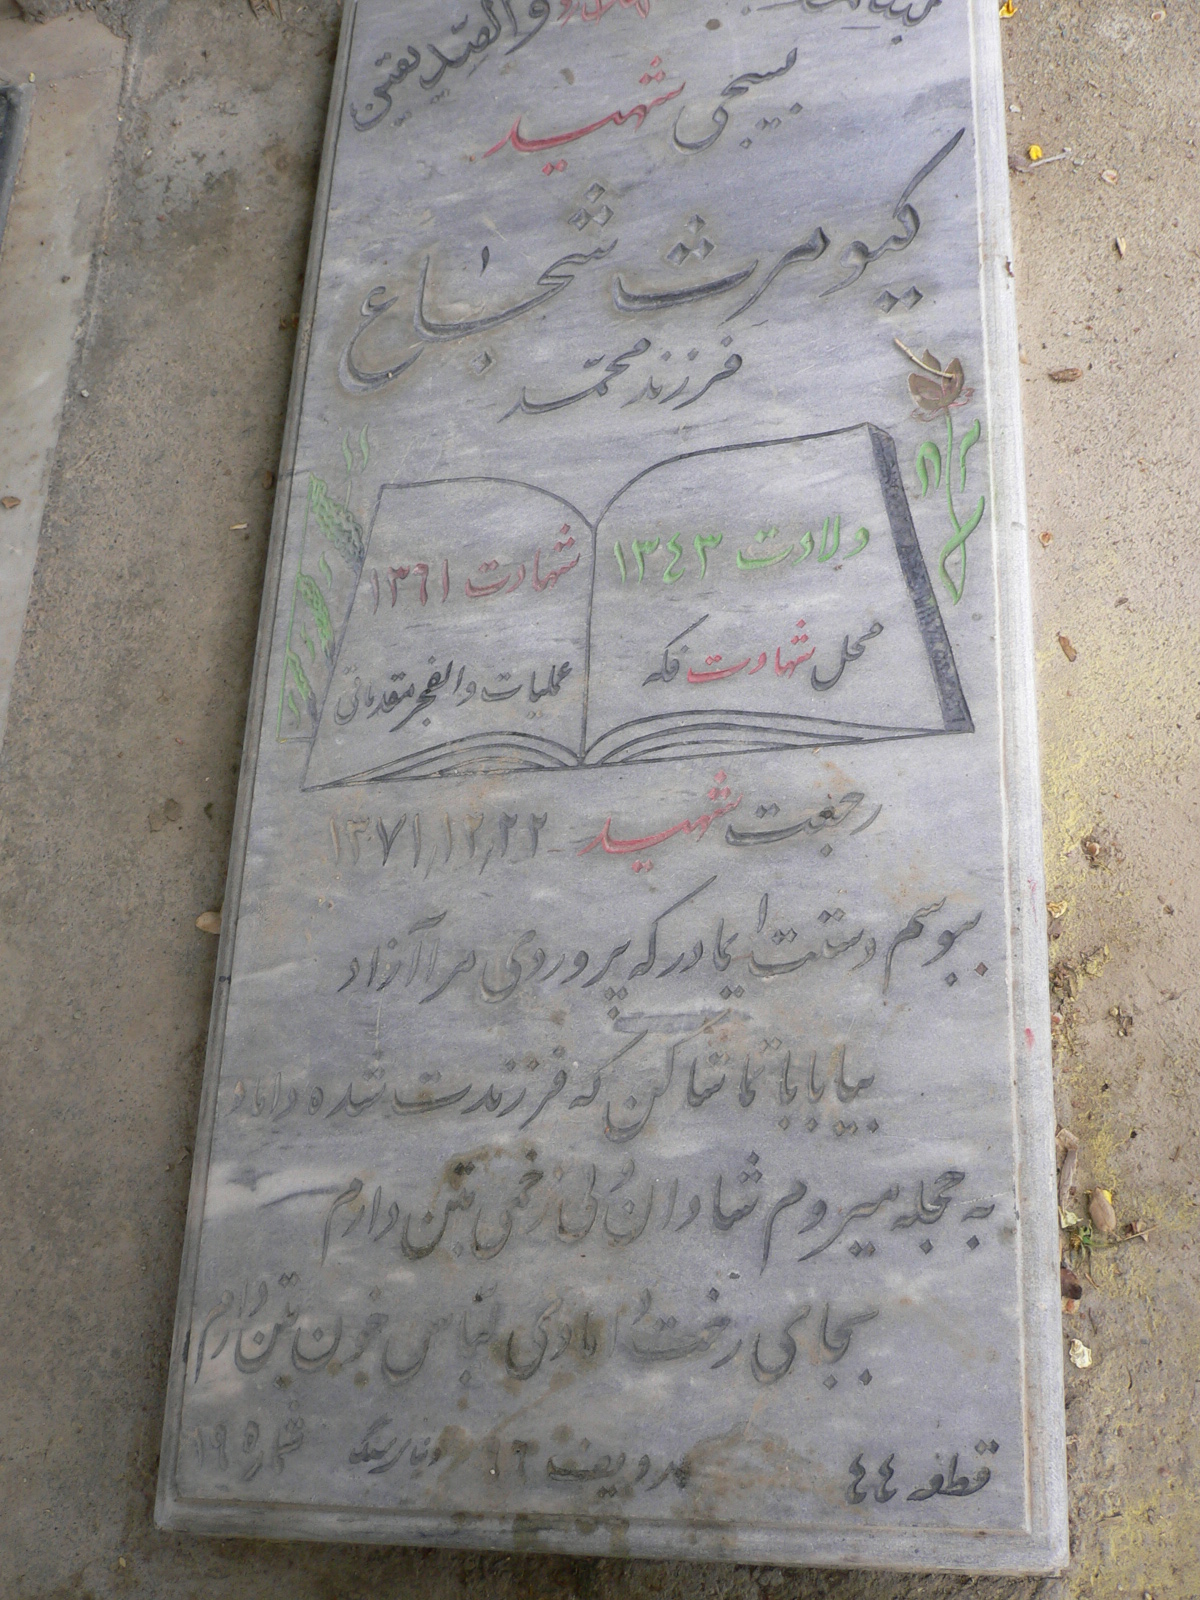 والصدیقین
بسیجی شهید
کیومرث شجاع
فرزند محمّد
ولادت ١٣٤٣
محل شهادت فکه
شهادت ١٣٦١
عملیات والفجر مقدماتی
رجعت شهید ١٣٧١,١٢,٢٢
ببوسم دستت ایمادر که پروردی مرا آزاد
بیا بابا تماشا کن که فرزندت شده داماد
به حجله میروم شادان ولی زخمی بتن دارم
بجای رخت دامادی لباس خون بتن دارم
قطعه ٤٤
ردیف ١٦
شماره ١٩